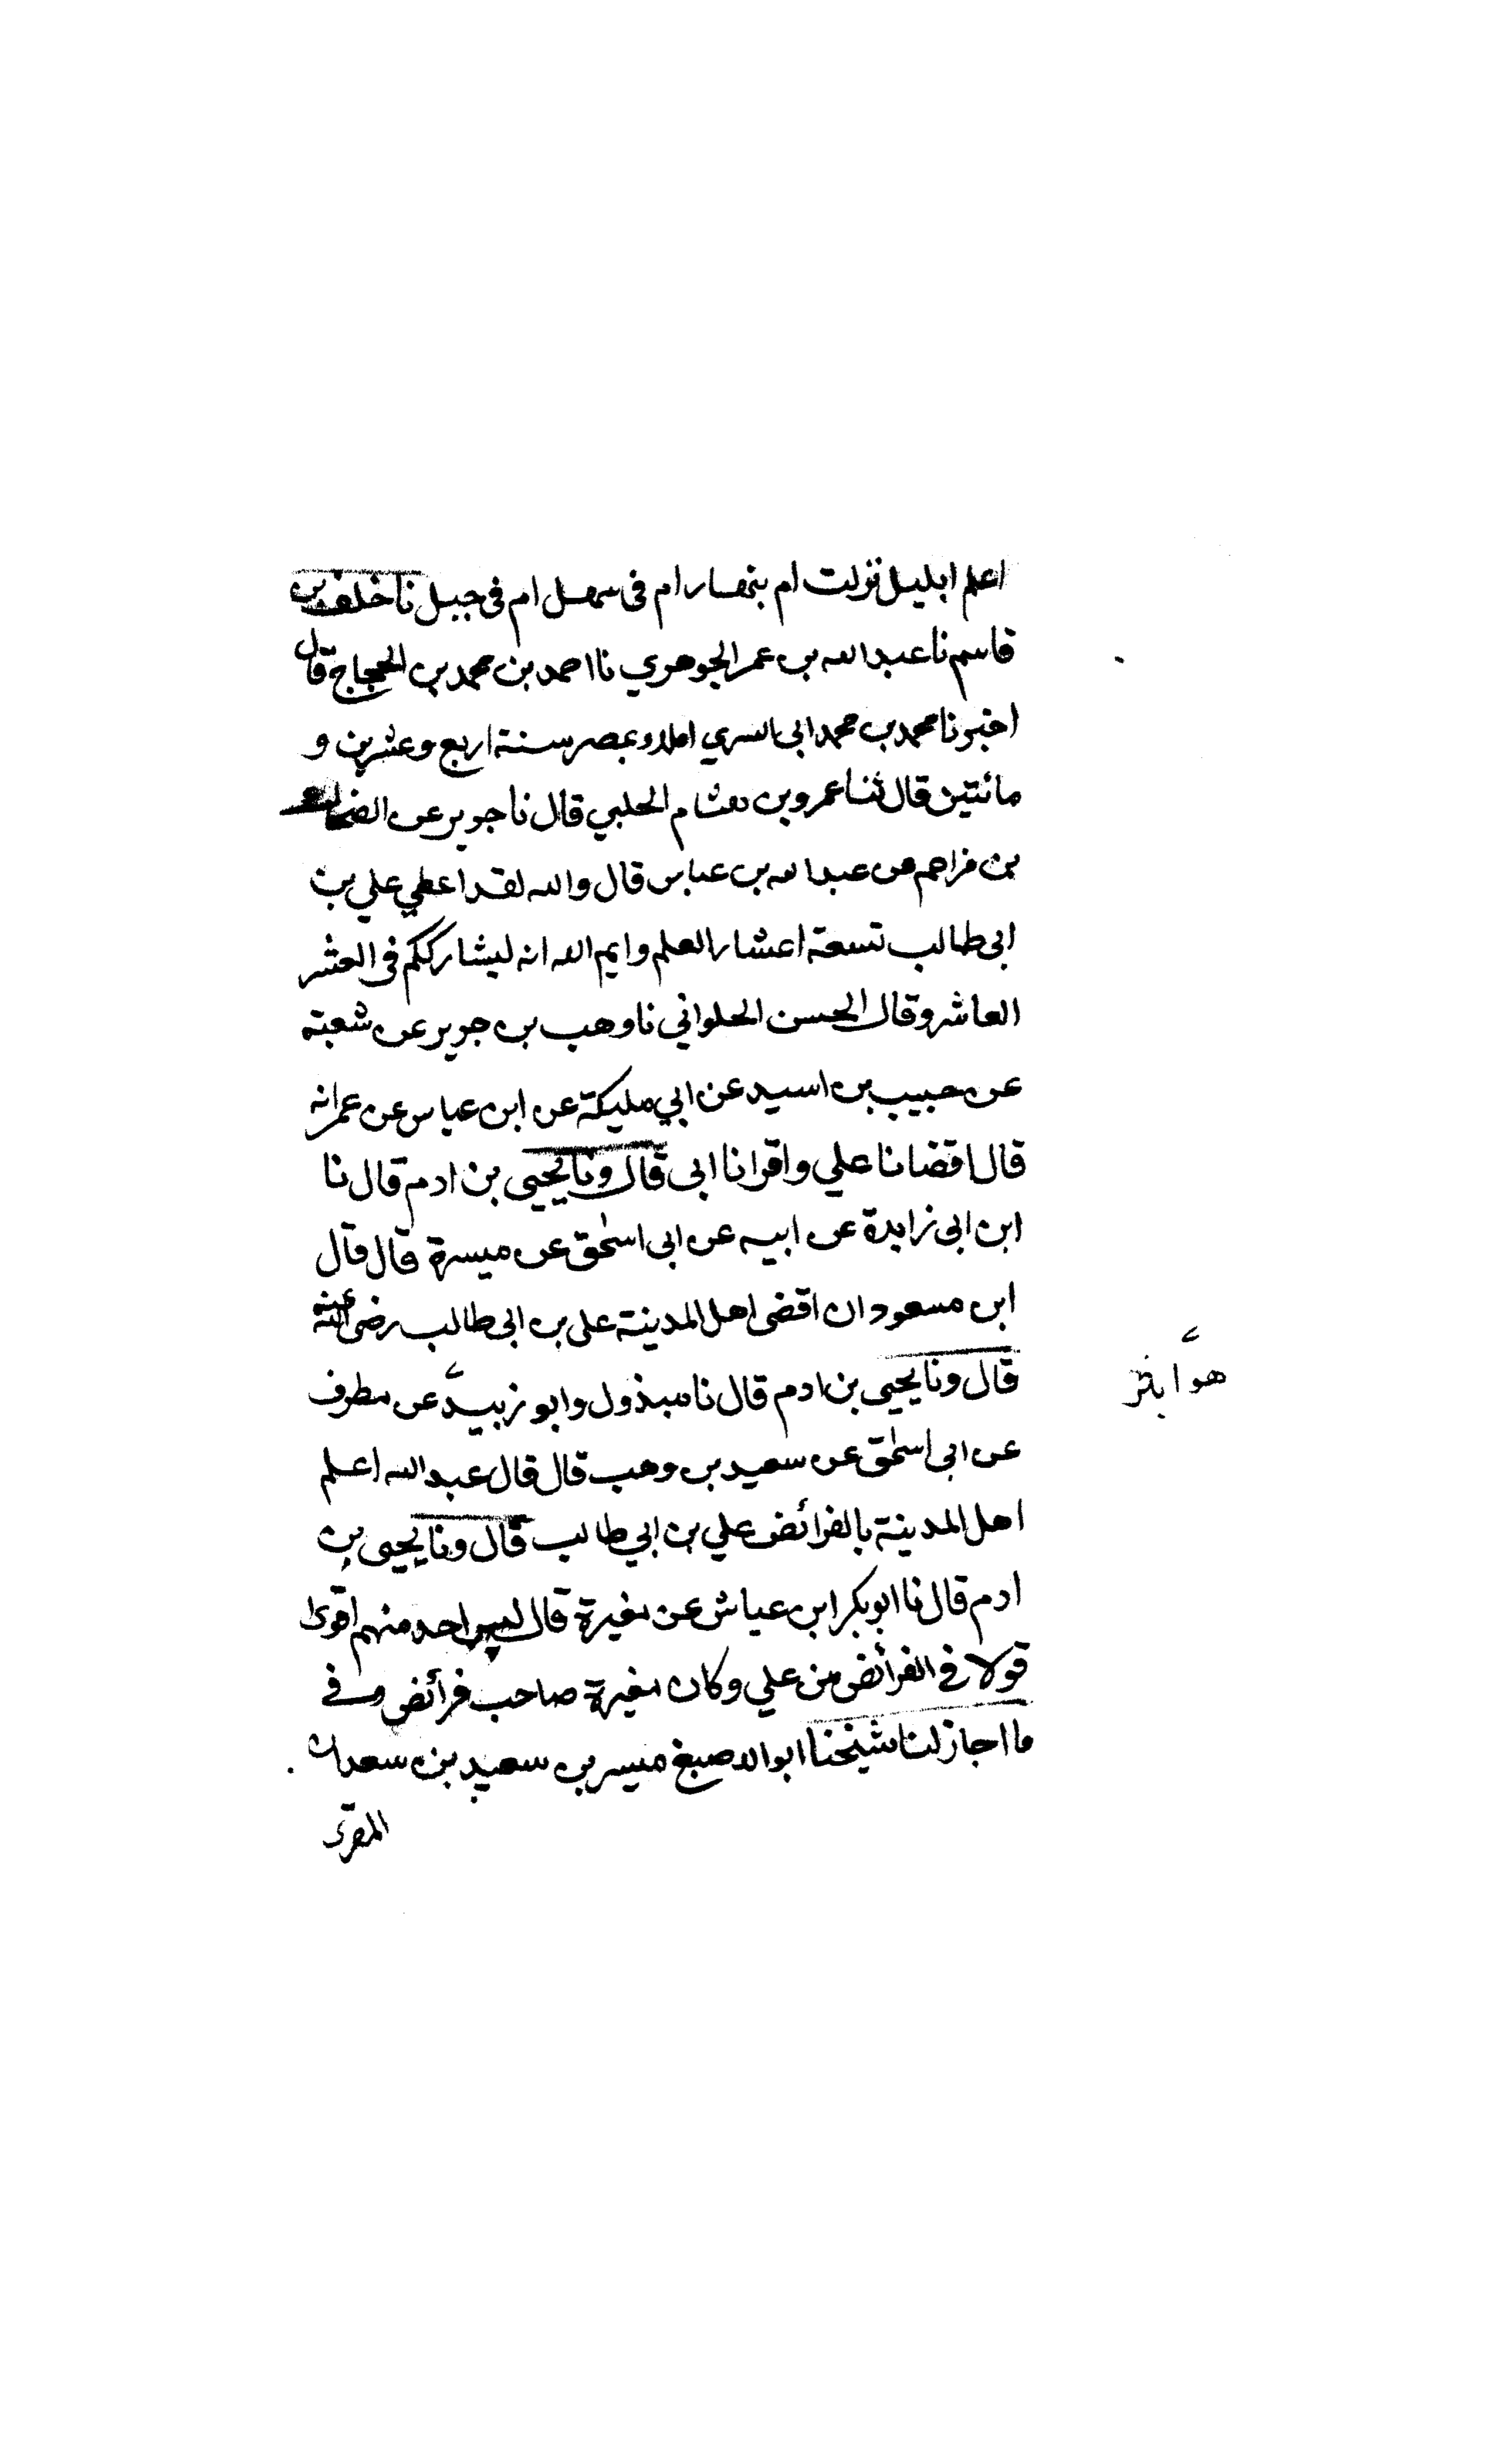 اعلم ابليل نزلت ام بنهار ام فى سهل ام فى جبل نا خلف بن
قاسم نا عبد الله بن عمر الجوهري نا احمد بن محمد بن الحجاج قال
اخبرنا محمد بن محمد ابى السري املاء بمصر سنة اربع وعشرين و
مائتين قال ثنا عمرو بن هشام الحلبي قال نا جويبر عن الضحاك
بن مزاحم عن عبد الله بن عباس قال والله لقد اعطي علي بن
ابى طالب تسعة اعشار العلم وايم الله انه ليشارككم فى العشر
العاشر وقال الحسن الحلواني نا وهب بن جرير عن شعبة
عن حبيب بن اسيد عن ابي مليكة عن ابن عباس عن عمر انه
قال اقضانا علي واقرانا ابى قال ونا يحيى بن ادم قال نا
ابن ابى زايدة عن ابيه عن ابى اسحق عن ميسرة قال قال
ابن مسعود ان اقضى اهل المدينة على بن ابى طالب رضى الله عنه
قال ونا يحيى بن ادم قال نا مبذول وابو زبيد عن مطرف
عن ابى اسحق عن سعيد بن وهب قال قال عبد الله اعلم
اهل المدينة بالفرائض علي بن ابي طالب قال ونا يحيى بن
ادم قال نا ابو بكر ابن عياش عن مغيرة قال ليس احد منهم اقوى
قولا فى الفرائض من علي وكان مغيرة صاحب فرائض وفى
ما اجاز لنا شيخنا ابو الاصبغ ميسر بن سعيد بن سعدان
المقرى